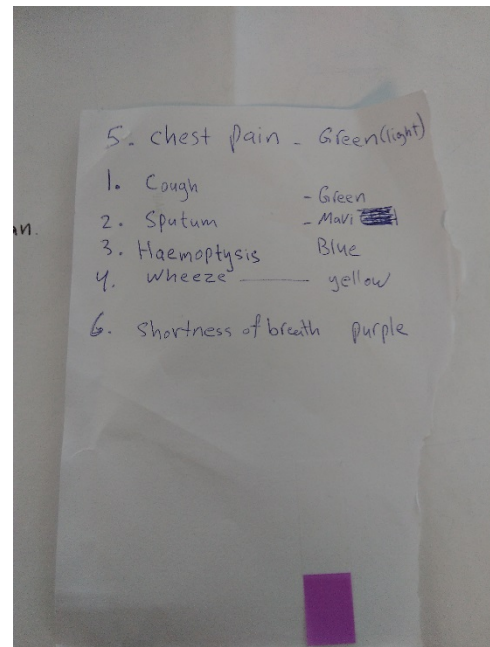 5. chest pain - Green(light)
1. Cough - Green
an.
2. Sputum - Mavi
3. Haemoptysis Blue
4. wheeze yellow
6. shortness of breath purple